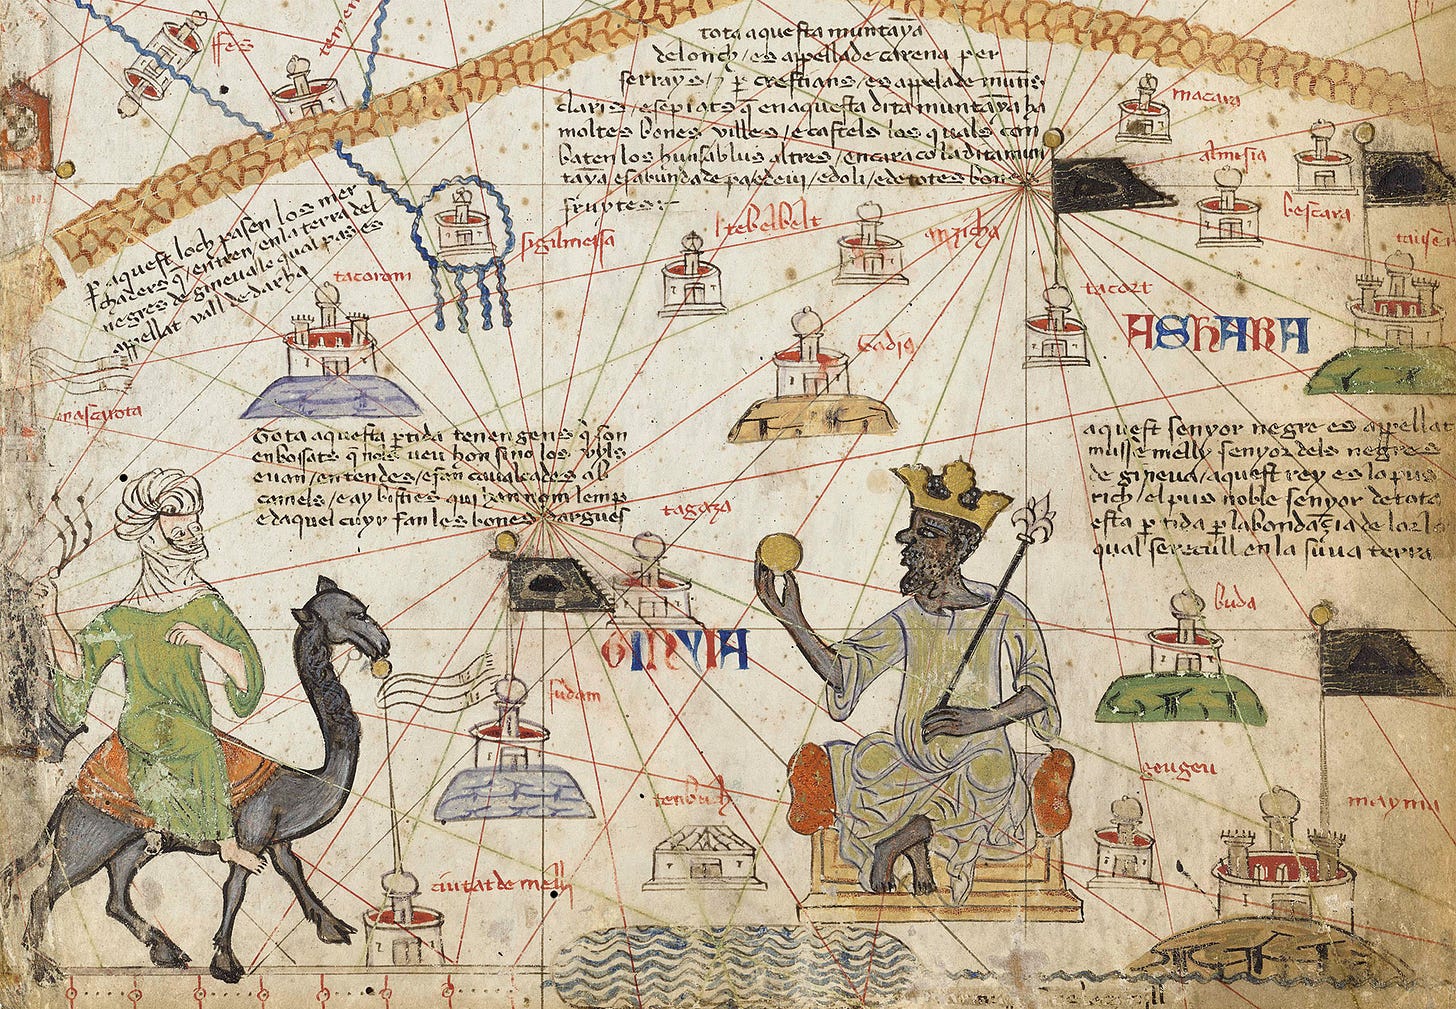 fes
tota aquesta muntaya
de lonch / es appellade carena per
serrayns / 7 p crestians / es appelade muntis
claris e sepiats q en aquesta dita muntaya ha
moltes bones villes / e castels los quals con
baten los huns ab lus altres / encara co la dita mun
taya es abundade pa e de vi / e d oli / e de totes bones
fruytes
macara
almisia
bescara
p aquest loch pasen los mer
chaders q entren en la terra del
negres de gineva le qual pas es
appellat vall de darha
sigilmessa
tebelbelt
anzicha
tacort
tacorom
badia
ASHARA
nascarota
Tota aquesta ptida tenen gens q son
enbosats q nols veu hom sino los uyls
e van / en tendes / e fan cavalcades ab
camels / e ay bisties qui han nom lemp
e d aquel cuyr fan les bones dargues
aquest senyor negre es appellat
musse melly senyor dels negres
de gineva / aquest rey es lo pus
rich / el pus noble senyor de tota
esta ptida p labondazia de lor lo
qual se recull en la suua terra
tagaza
GINYIA
buda
sudam
tenbuch
geugeu
mayma
ciutat de melli